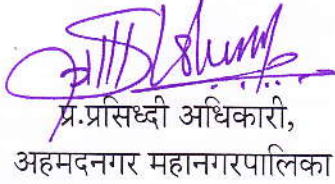 प्र.प्रसिध्दी अधिकारी,
अहमदनगर महानगरपालिका